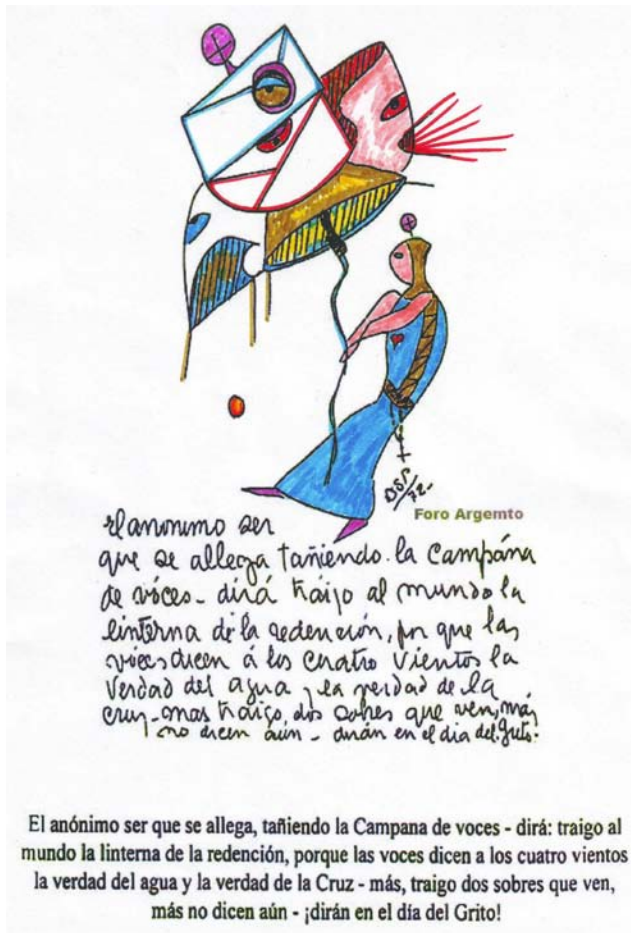 BSP/72-
Foro Argemto
El anonimo ser
que se allega tañiendo la campána
de vóces - dirá traigo al mundo la
linterna de la redención, por que las
vóces dicen á los cuatro vientos la
verdad del agua y la verdad de la
cruz - mas traigo, dos sobres que ven, más
no dicen aún - dirán en el dia del Grito.
El anónimo ser que se allega, tañiendo la Campana de voces - dirá: traigo al
mundo la linterna de la redención, porque las voces dicen a los cuatro vientos
la verdad del agua y la verdad de la Cruz - más, traigo dos sobres que ven,
más no dicen aún - ¡dirán en el día del Grito!